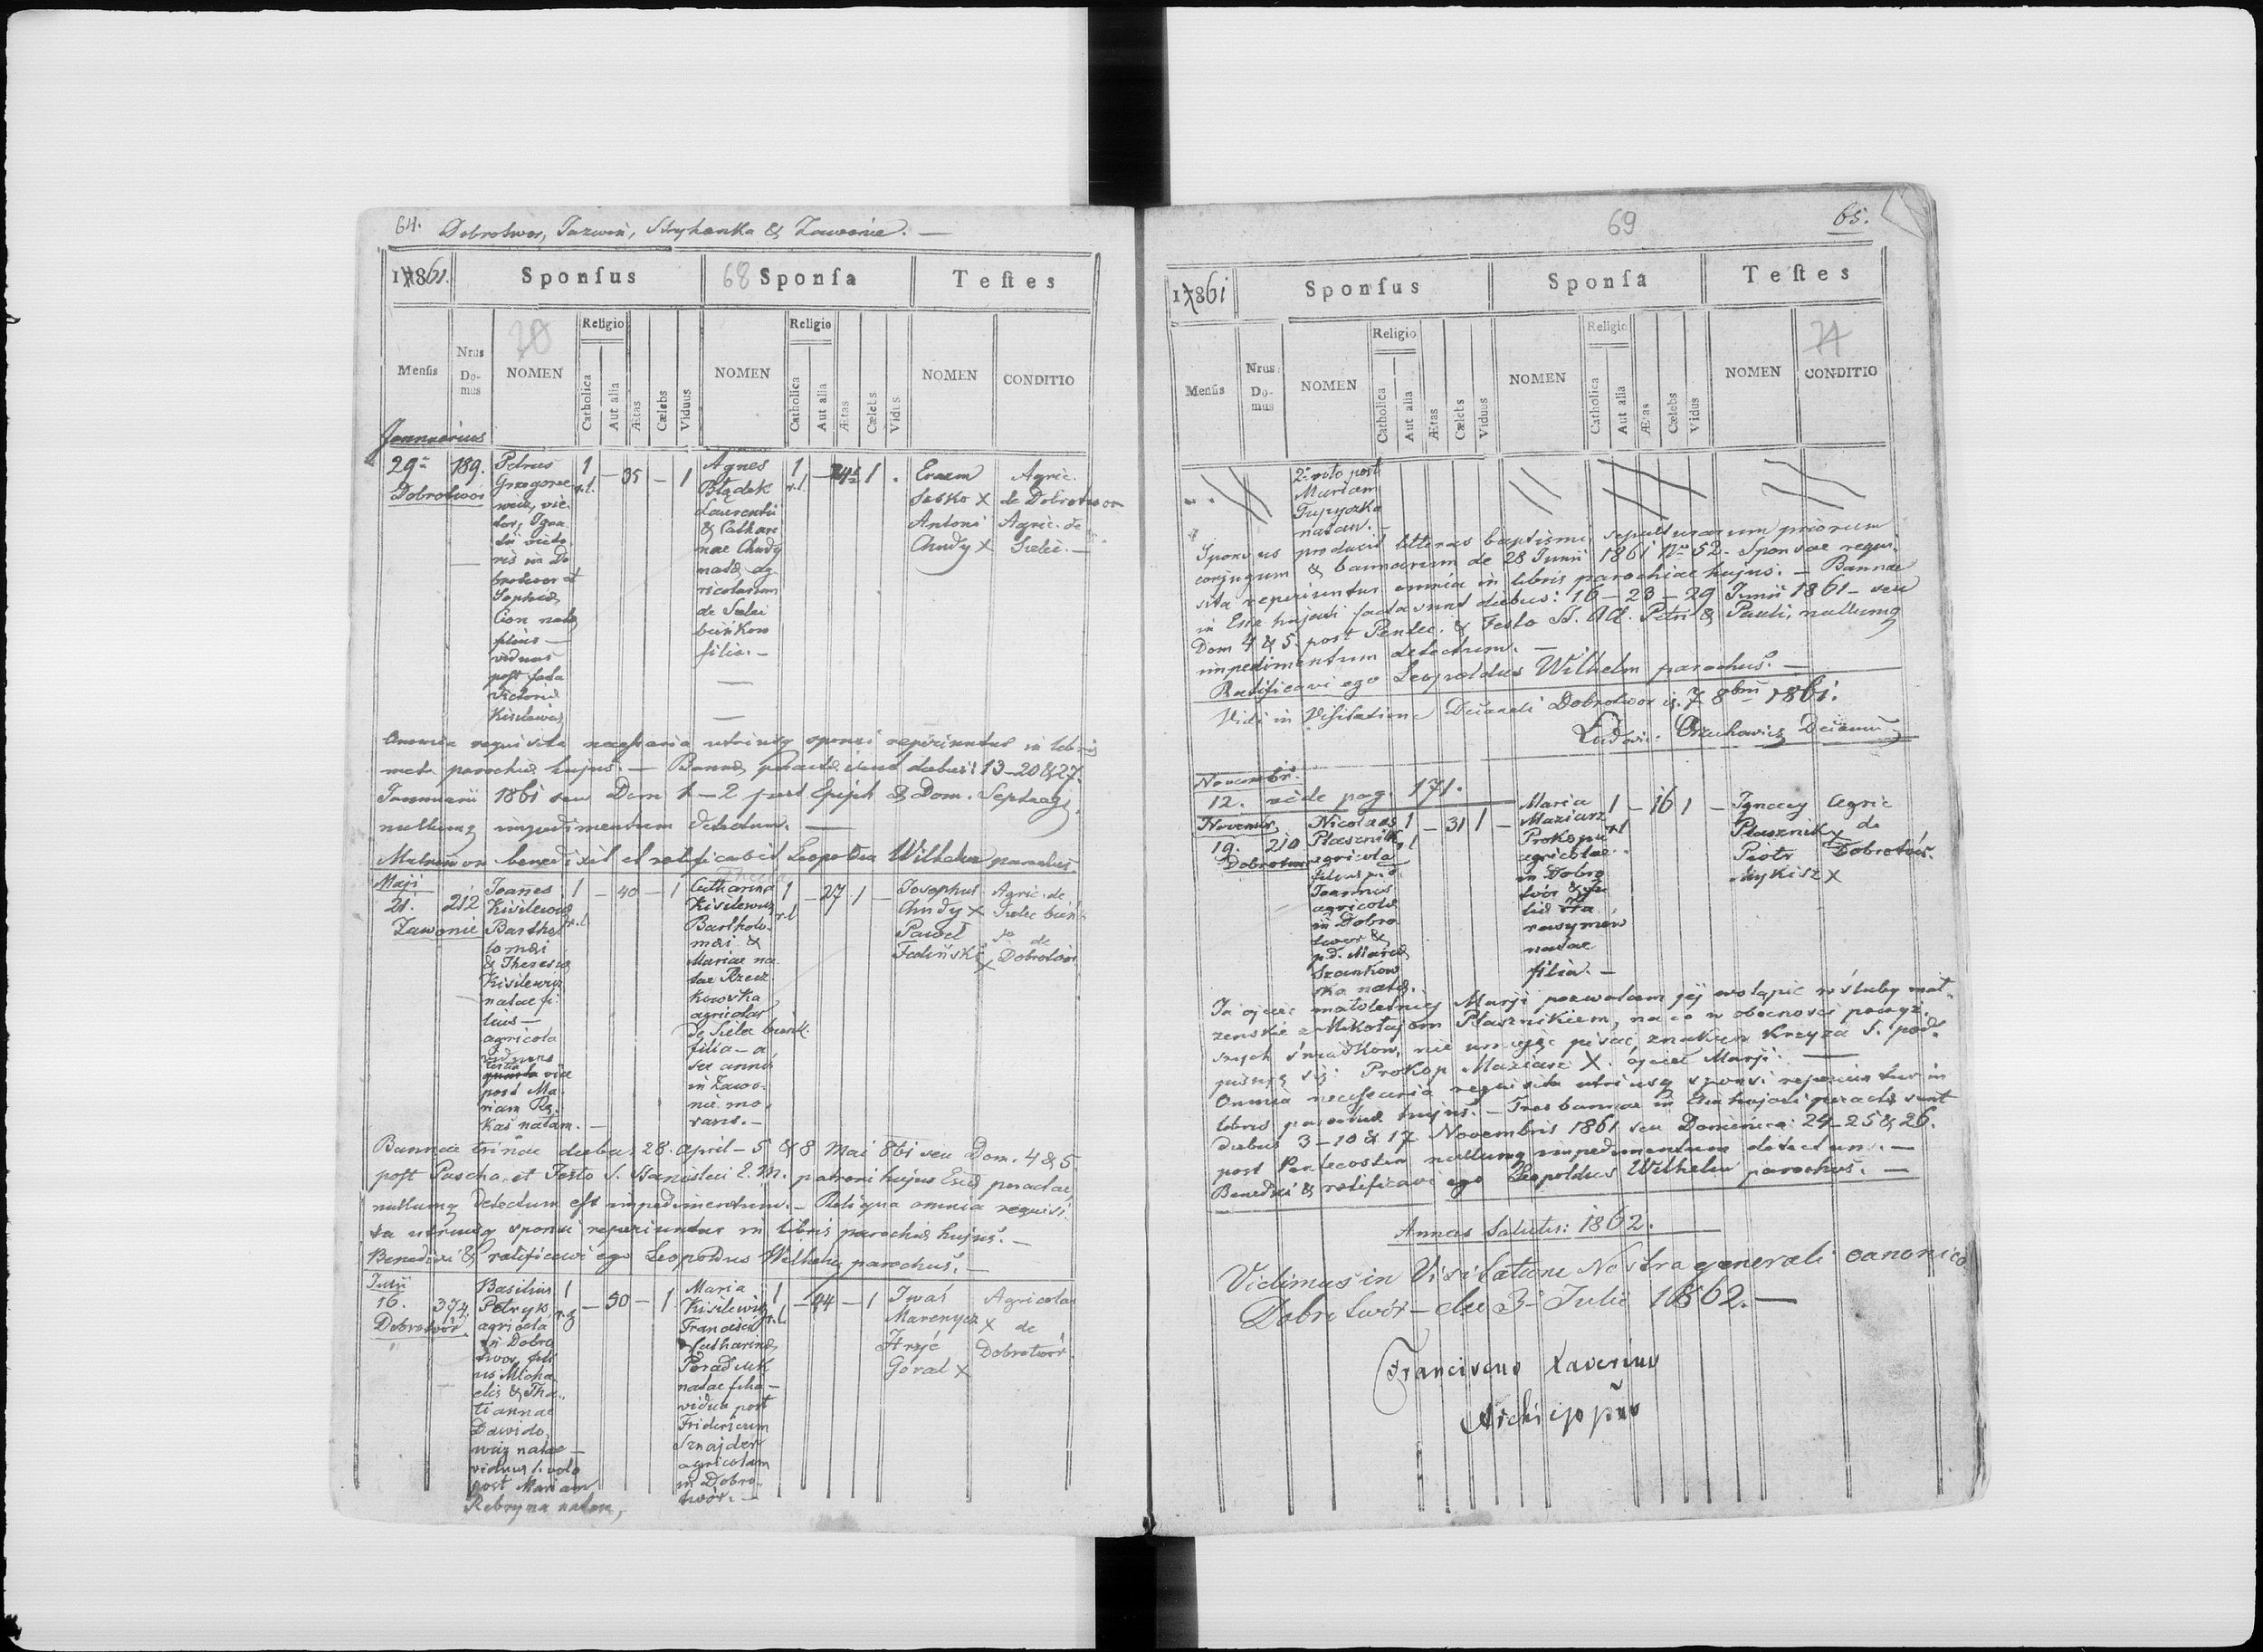 64. Dobrotwor, Jazwin, Stryhanka & Zawonie. —
1861.
Sponſus
68 Sponſa
Teſtes
Menſis
Nrus Domus
NOMEN
Religio
Catholica
Aut alia
Ætas
Cælebs
Viduus
NOMEN
Religio
Catholica
Aut alia
Ætas
Cælebs
Vidus
NOMEN
CONDITIO
Januarius
29a 189.
Dobrotwór
Petrus
Grzegorze
wicz, vie
tor, Igna
tii vieto
ris in Do
brotwor et
Sophiæ
Cion natæ
filius —
viduus
post fata
Victoriæ
Kisilewicz
1 r.l. — 35 — 1
Agnes
Błądek
Laurentii
& Cathari
nae Chudy
natæ ag
ricolarum
de Sielec
beńkow
filia. —
1 r.l. — 24 1 .
Erazm
Sasko X
Antoni
Chudy X
Agric.
de Dobrotwor
Agric. de
Sielec. —
Omnia requisita necessaria utriusq sponsi reperiuntur in libris
metr. parochiæ hujus. — Bannæ peractæ sunt diebus: 13–20 & 27.
Januarii 1861 seu Dom 1–2 post Epiph & Dom. Septuag.
nullumq impedimentum detectum. —
Matrimon benedixit et ratificavit Leopoldus Wilhelm parochus.
Maji
21. 212
Zawonie
Joannes
Kisilewicz
Bartho
lomæi
& Theresiæ
Kisilewicz
natae fi
lius —
agricola
viduus
tertia
vice
post Ma
riam Rę
kas natam. —
1 r.l. — 40 — 1
Catharina
Kisilewicz
Bartholo
mæi &
Mariae na
tae Rzecz
kowska
agricolar
de Sielec bieńk.
filia — a
sex annis
in Zawo
nie mo
rans. —
1 r.l. — 27 1 —
Josephus
Chudy X
Paweł
Faliński X
Agric. de
Sielec bieńk.
de
Dobrotwór
Bannae trinae diebus 28. April – 5 & 8 Mai 861 seu Dom. 4 & 5
post Pascha et Festo S. Stanislai E. M. patroni hujus Ecclæ peractae,
nullumq detectum est impedimentum. — Reliqua omnia requisi
ta utriusq sponsi reperiuntur in libris parochiæ hujus. —
Benedixi & ratificavi ego Leopoldus Wilhelm parochus. —
Julii
16. 374
Dobrotwór
Basilius
Petryk
agricola
in Dobro
twor, fili
us Micha
elis & Tha
tiannae
Dawido
wicz natae —
viduus 1. voto
post Mariam
Rebryna natam,
1 r.g — 50 — 1
Maria
Kisilewicz
Francisci
& Catharinæ
Poradiuk
natae filia —
vidua post
Fridericum
Sznajder
agricolam
in Dobro
twór. —
1 r.l — 44 — 1
Iwaś
Marenycz X
Hryć
Góral X
Agricolae
de
Dobrotwór
69
65.
1861
Sponſus
Sponſa
Teſtes
Menſis
Nrus Domus
NOMEN
Religio
Catholica
Aut alia
Ætas
Cælebs
Viduus
NOMEN
Religio
Catholica
Aut alia
Ætas
Cælebs
Vidus
NOMEN
CONDITIO
2° voto post
Mariam
natam. —
Sponsus producit litteras baptismi, sepulturarum priorum
conjugum & bannorum de 28 Junii 1861 Nro 52. Sponsae requi
sita reperiuntur omnia in libris parochiae hujus. — Bannae
in Ecla hujati factae sunt diebus: 16 – 23 – 29 Junii 1861 – seu
Dom 4 & 5. post Pentec. & Festo SS. Ap. Petri & Pauli, nullumq
impedimentum detectum. —
Ratificavi ego Leopoldus Wilhelm parochus. —
Vidi in Visitatione Decanali Dobrotwor 7 8bris 1861.
Novembr.
12. vide pag. 171.
Novembr
19. 210
Dobrotwor
Nicolaus
Ptasznik
agricola
filius p.d.
Joannis
agricolæ
in Dobro
twor &
p.d. Mariæ
Szankow
ska natæ.
1 r.l — 31 1 —
Maria
Maziarz
Prokopii
agricolae
in Dobro
twór &
natae
filia. —
1 r.l — 16 1 —
Ignacy
Ptasznik X
Piotr
Mykisz X
Agric
de
Dobrotwór.
Ja ojciec małoletniej Marji pozwalam jej wstąpić w śluby mał
żenskie z Mikołajem Ptasznikiem, na co w obecności poniż
szych świadków, nie umiejąc pisać, znakiem krzyża S. pod
pisuję się: Prokop Maziarz X. ojciec Marji. —
Omnia necessaria requisita utriusq sponsi reperiuntur in
libris parochiæ hujus. — Tres bannae in Ecla hujati peractæ sunt
diebus 3–10 & 17 Novembris 1861 seu Dominica: 24–25 & 26.
post Pentecosten nullumq impedimentum detectum. —
Benedixi & ratificavi ego Leopoldus Wilhelm parochus. —
Annus Salutis: 1862.
Vidimus in Visitatione Nostra generali canonica
Dobrotwór – die 3a Julii 1862. —
Franciscus Xaverius
Archieppus